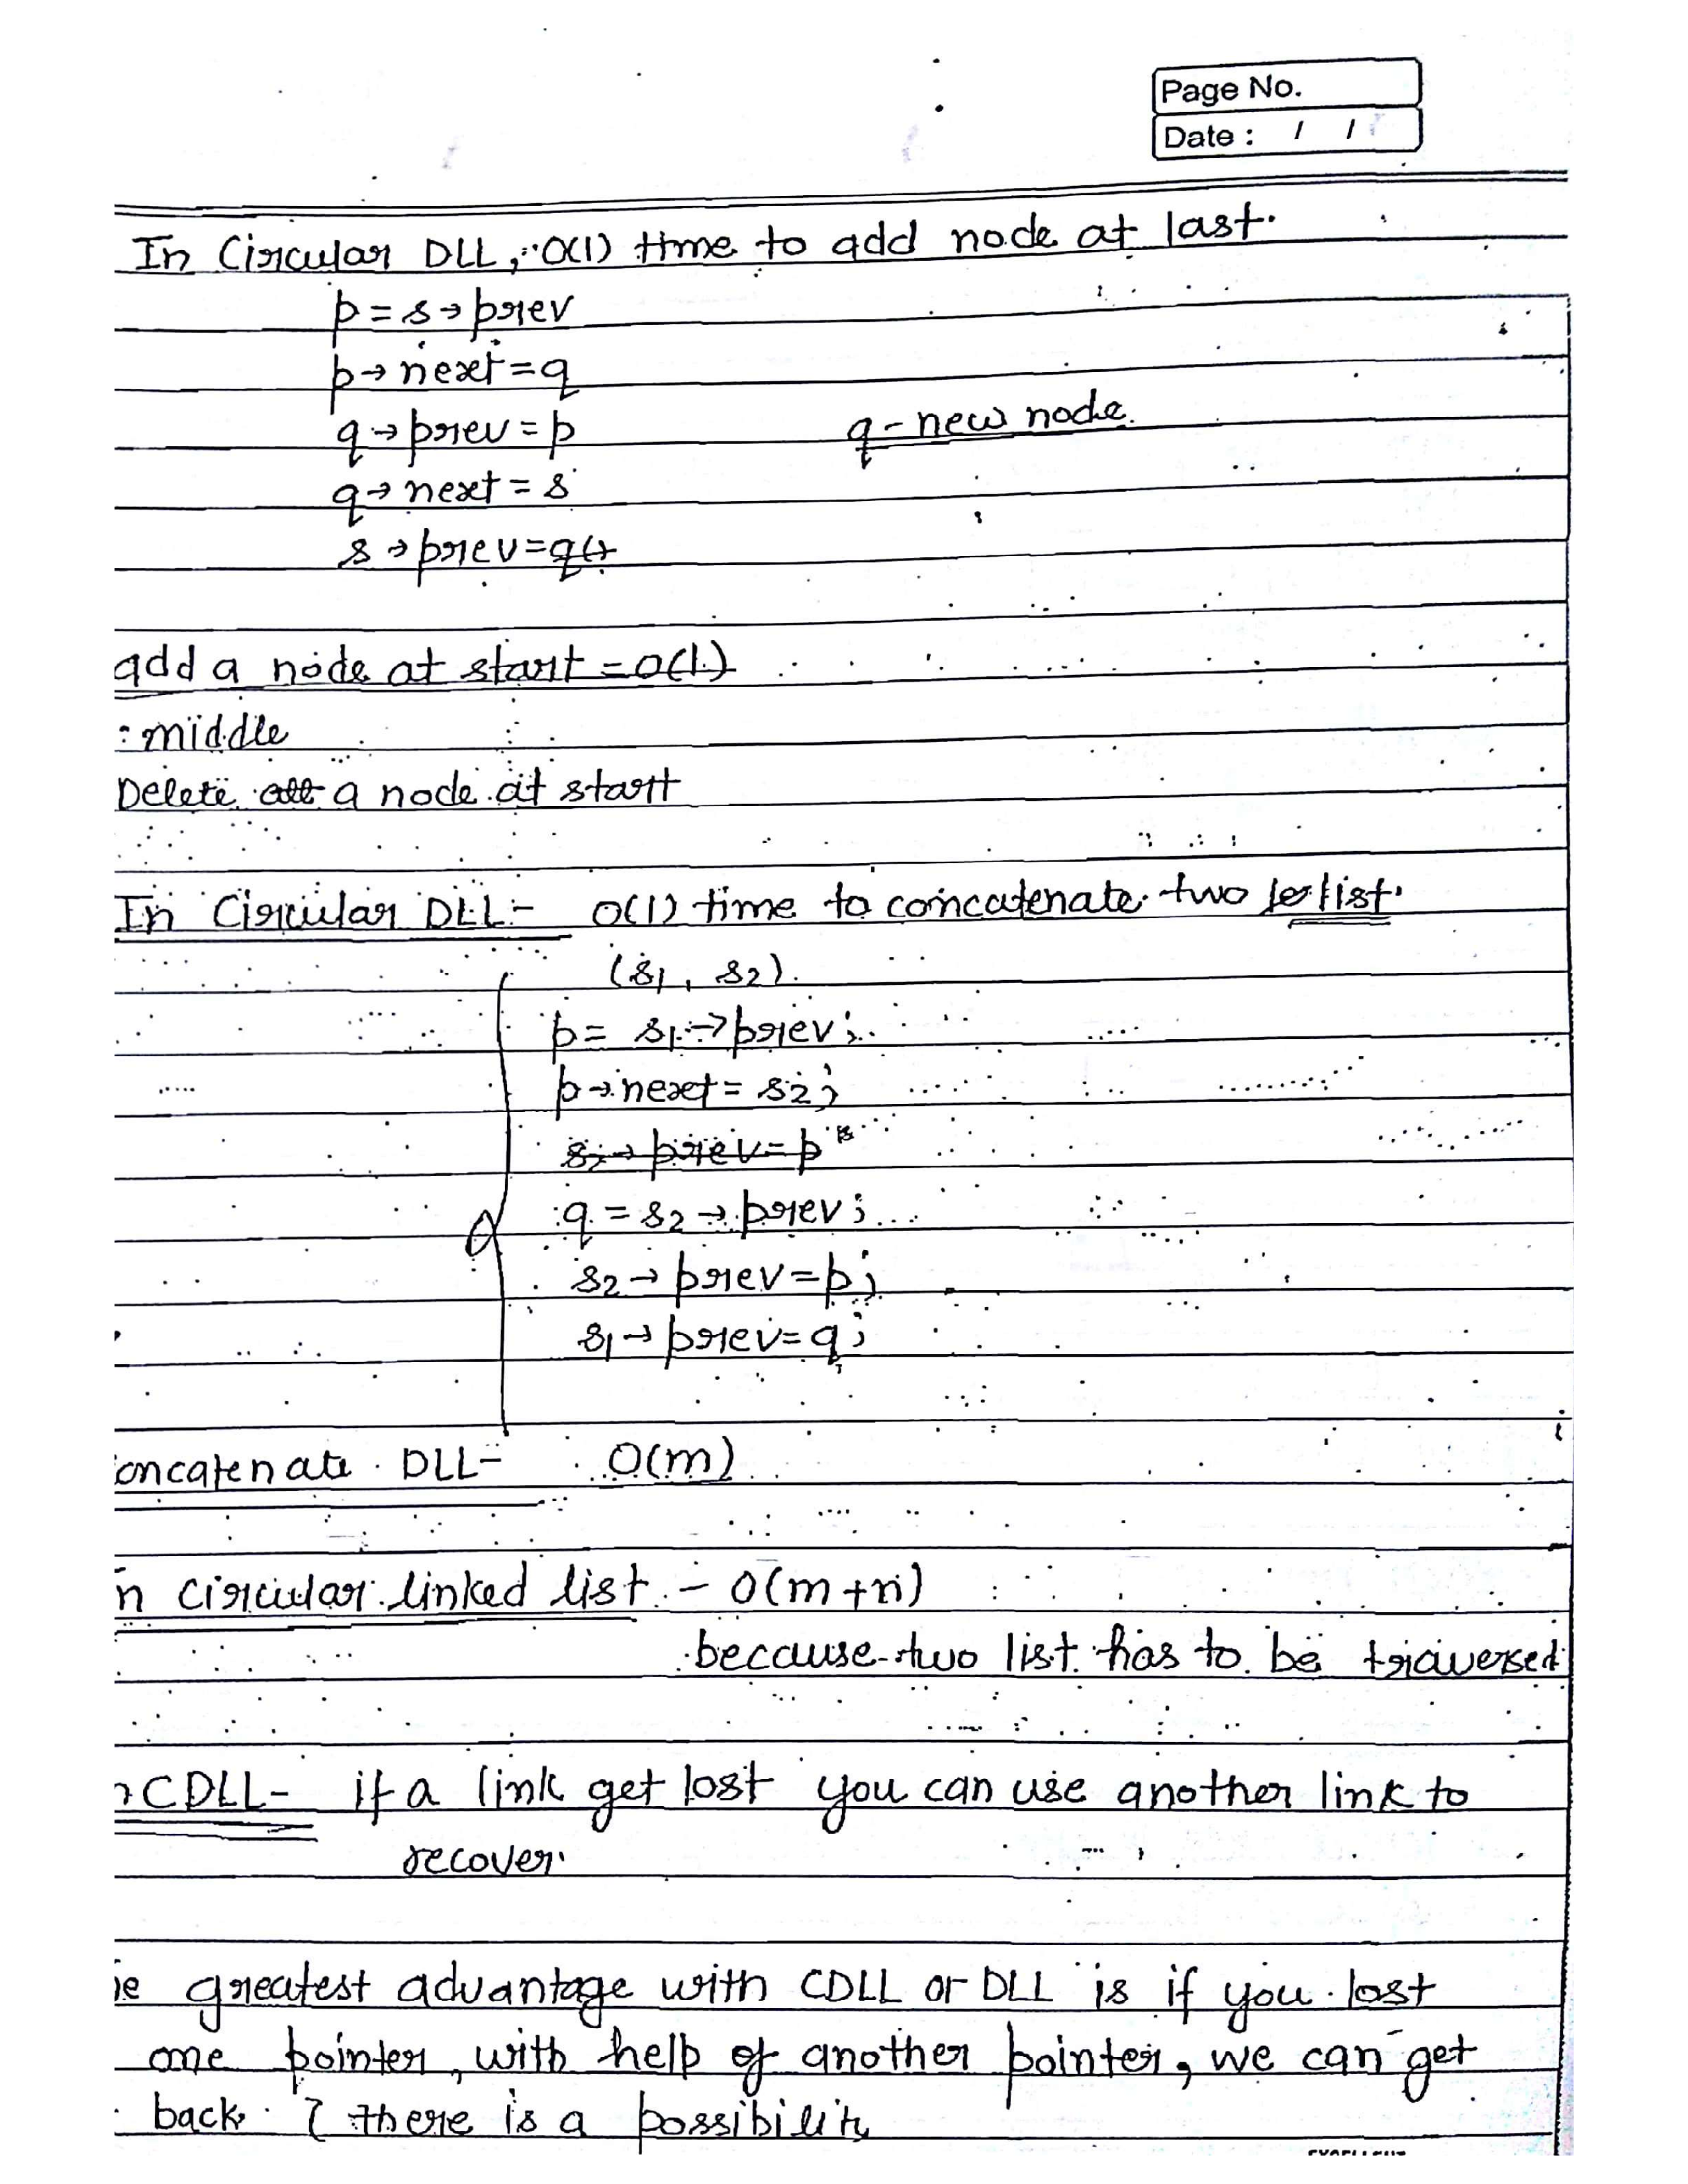 Page No.
Date : / /
In Circular DLL, O(1) time to add node at last.
p = s → prev
p → next = q
q → prev = p q - new node.
q → next = s
s → prev = q
add a node at start = O(1)
: middle
Delete a node at start
In Circular DLL:- O(1) time to concatenate two list.
(s1, s2)
p = s1 → prev;
p → next = s2;
s2 → prev = p
q = s2 → prev;
s2 → prev = p;
s1 → prev = q;
oncatenate DLL- O(m)
n circular linked list - O(m+n)
because two list has to be traversed
CDLL- if a link get lost you can use another link to
recover.
ie greatest advantage with CDLL or DLL is if you lost
one pointer, with help of another pointer, we can get
back. { there is a possibility